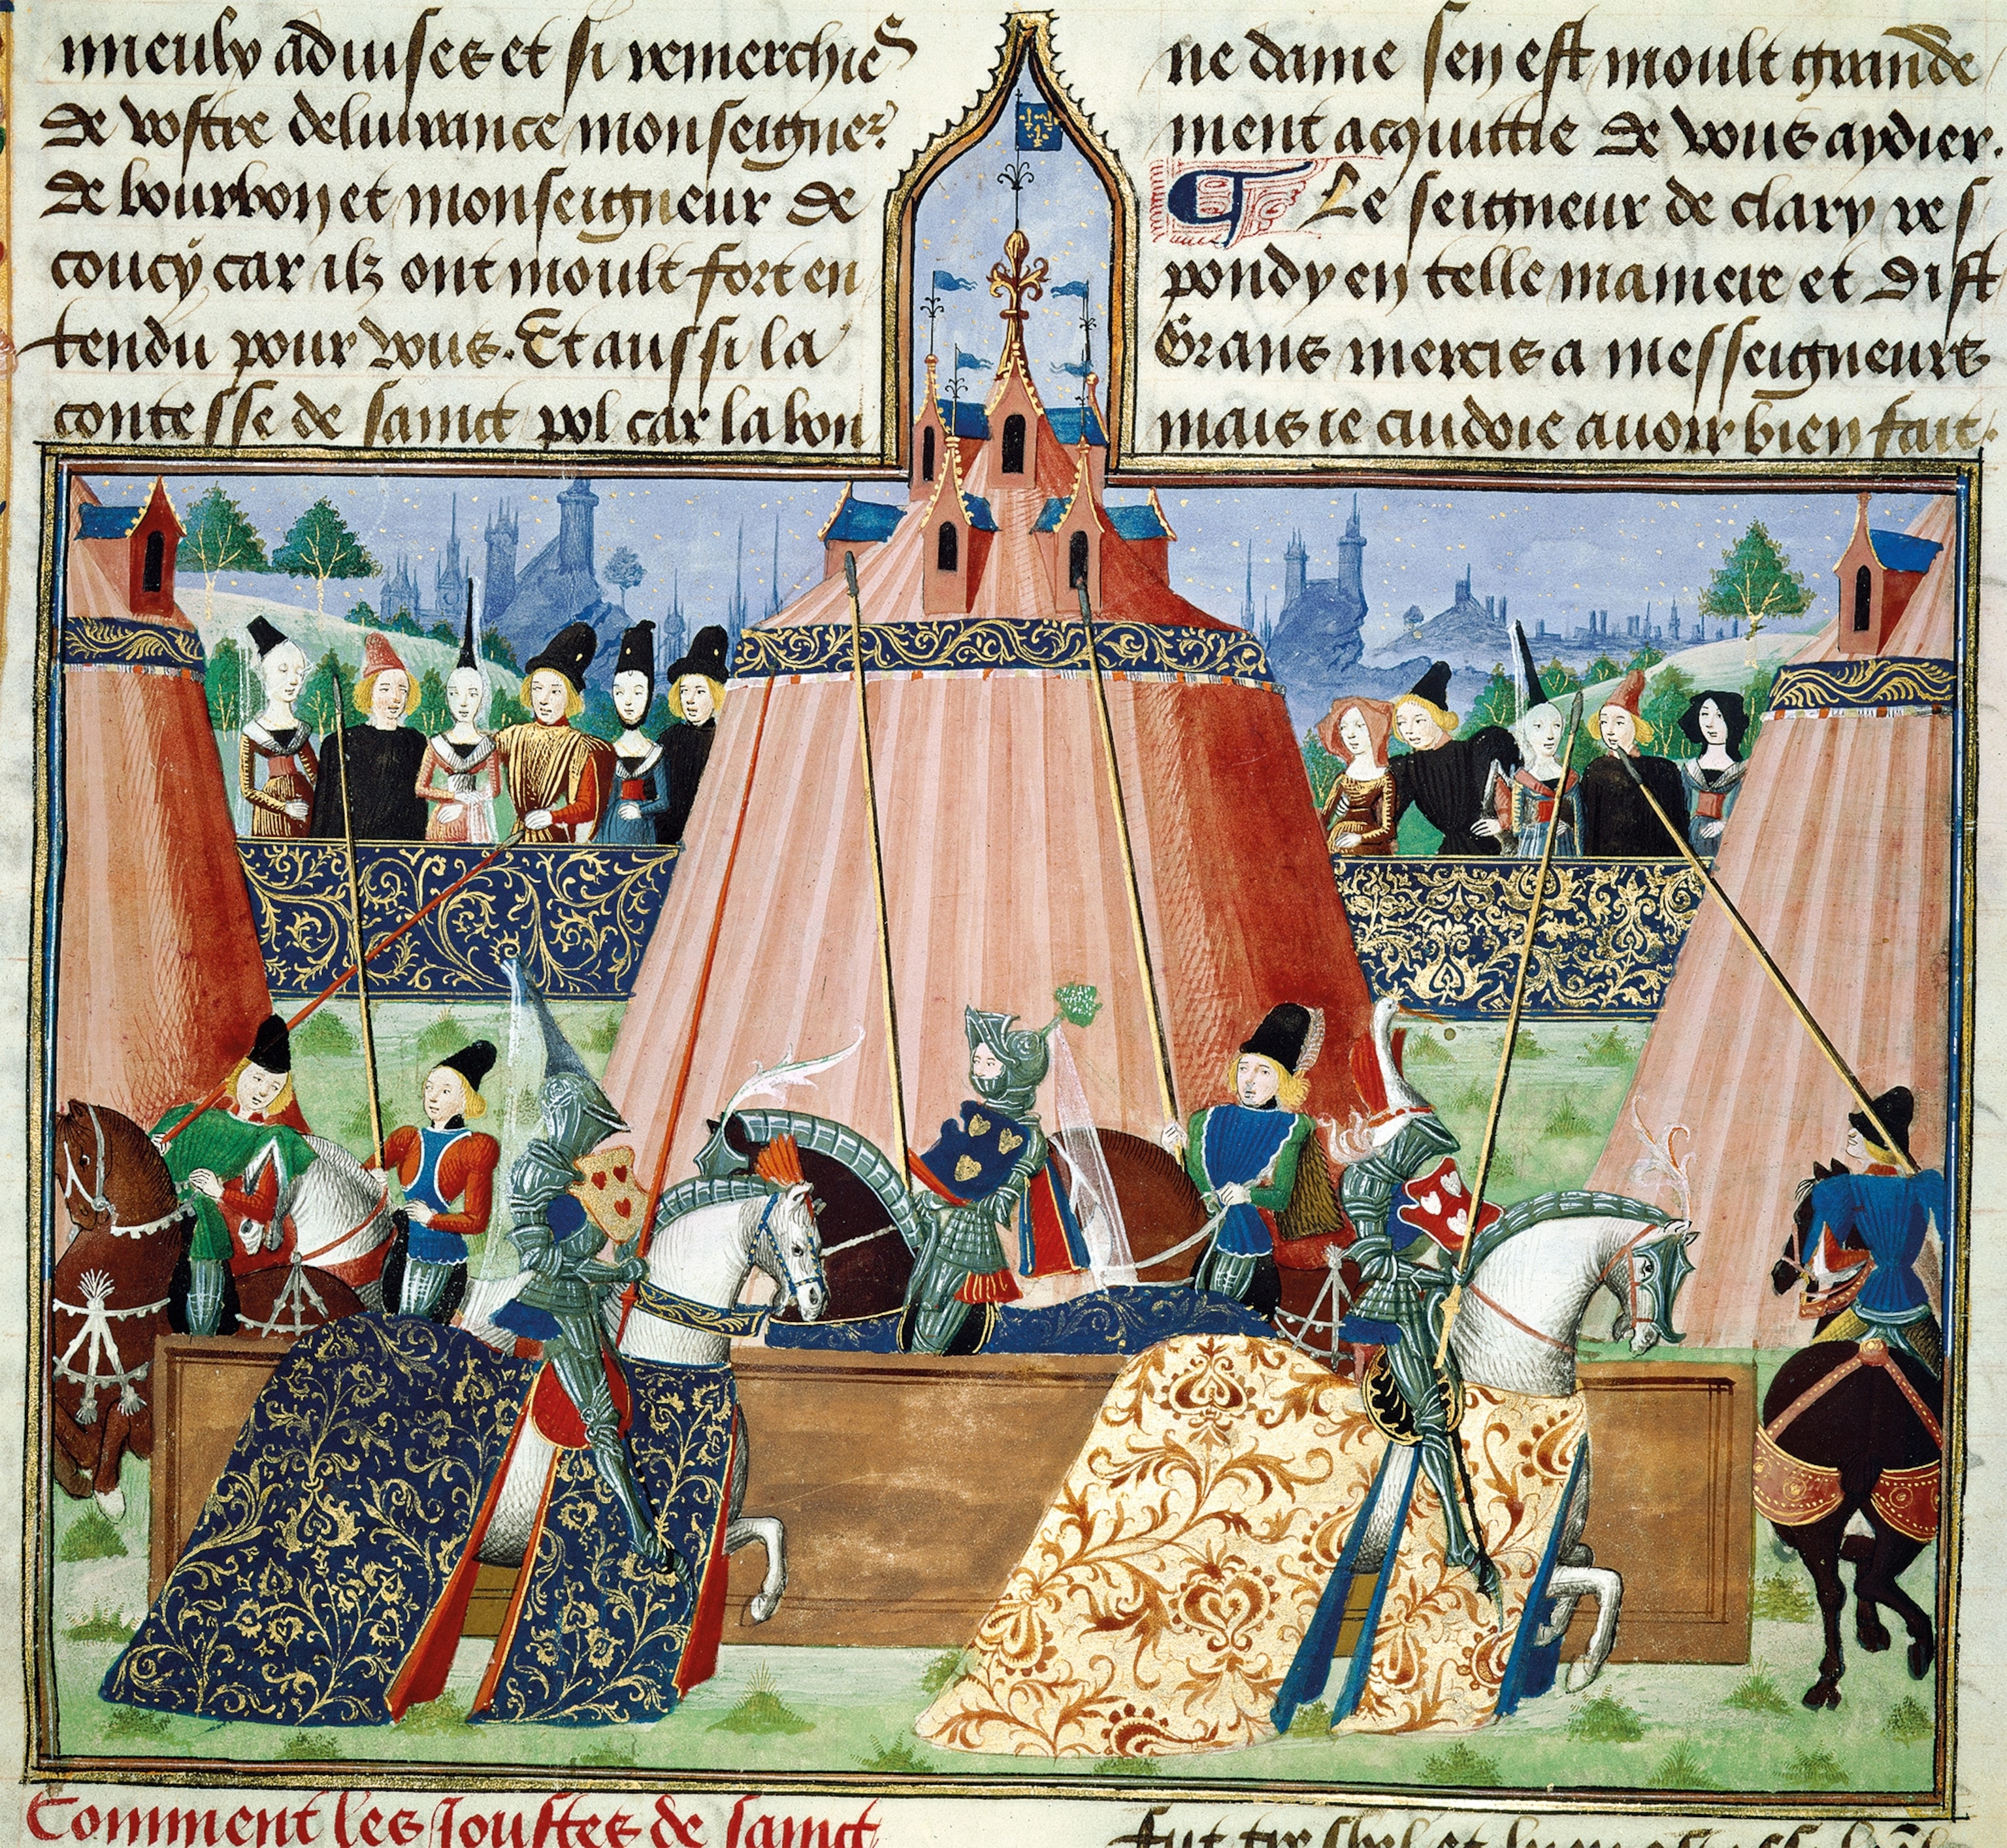 mieulx aduises et si remerchies
de vostre deliurance monseigner
de bourbon et monseigneur de
coucy car ilz ont moult fort en
tendu pour vous. Et aussi la
contesse de sainct pol car la bon
ne dame sen est moult grande
ment acquittie de vous aydier.
Le seigneur de clary res
pondy en telle maniere et dist
Grans mercis a messeigneurs
mais ie cuidoie auoir bien fait.
Comment les Joustes de sainct